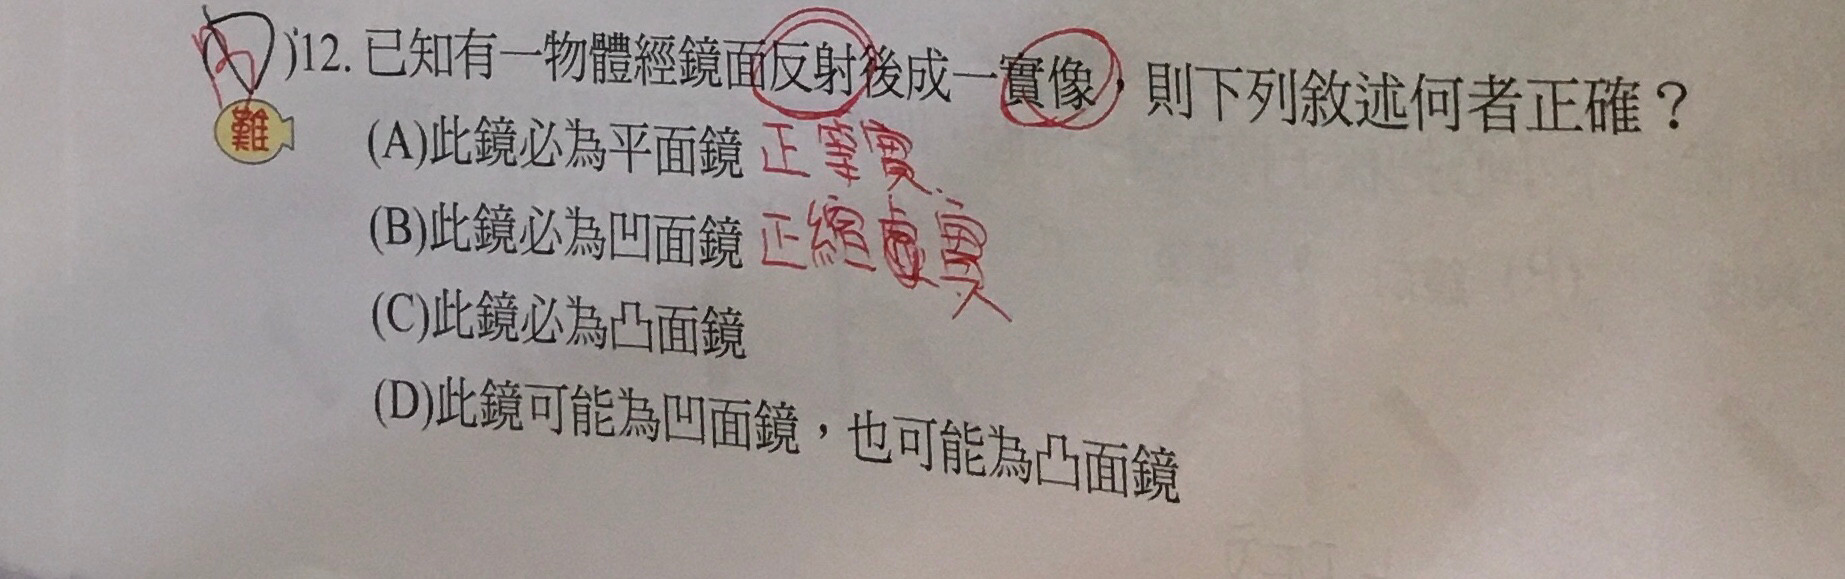 )12. 已知有一物體經鏡面反射後成一實像，則下列敘述何者正確？
難
(A)此鏡必為平面鏡 正 等 實
(B)此鏡必為凹面鏡 正 縮 虛 實
(C)此鏡必為凸面鏡
(D)此鏡可能為凹面鏡，也可能為凸面鏡